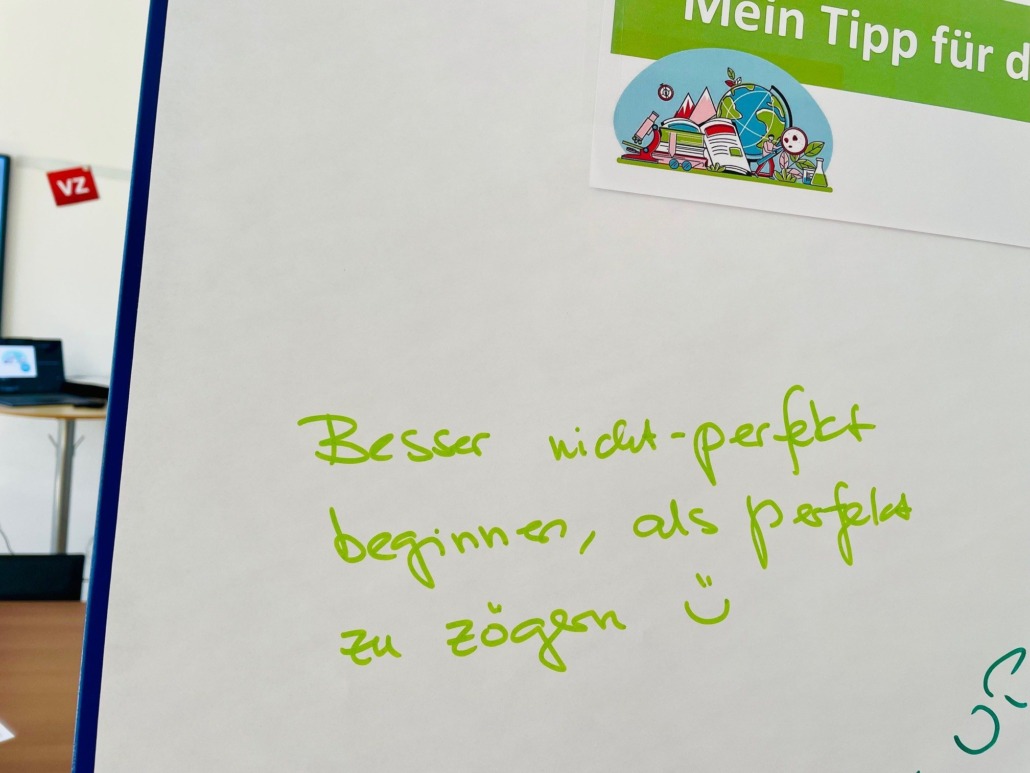 Mein Tipp für d
VZ
Besser nicht-perfekt
beginnen, als perfekt
zu zögern ü